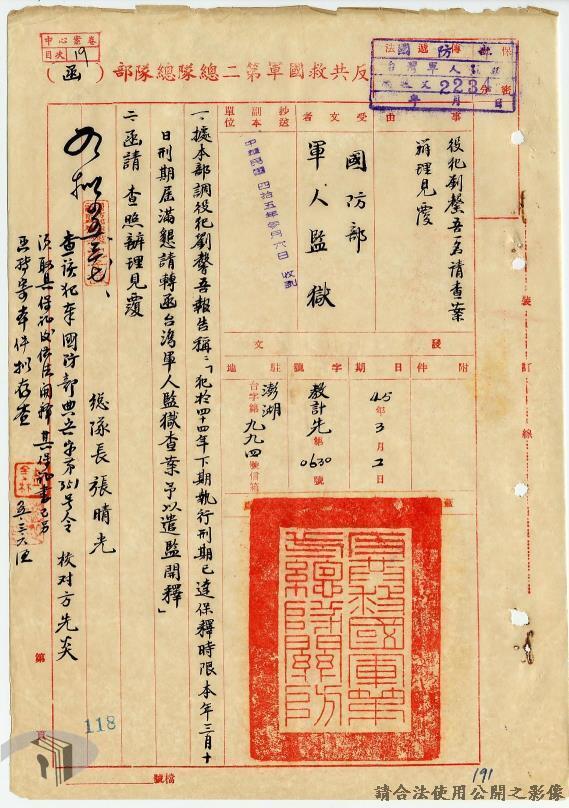 反共救國軍第二總隊總隊部（函）
中心案卷
目次
19
國防部
台灣軍人監獄
2234
年 月 日
事由
役犯劉馨吾為請查案
辦理見覆
受文者
國防部
軍人監獄
副本
抄送
單位
中華民國四拾五年 月六日 收到
附件
日期
45年3月2日
字號
教計先第0630號
駐地
澎湖
台字第九九四號信箱
發文
一、據本部調役犯劉馨吾報告稱：「犯於四十四年下期執行刑期已達保釋時限本年三月十
日刑期屆滿懇請轉函台灣軍人監獄查案予以遣監開釋」
二、函請 查照辦理見覆
總隊長 張晴光
校对 方先炎
查該犯奉國防部
號令
件擬存查
裝
訂
線
第 頁
檔號
118
191
請合法使用公開之影像